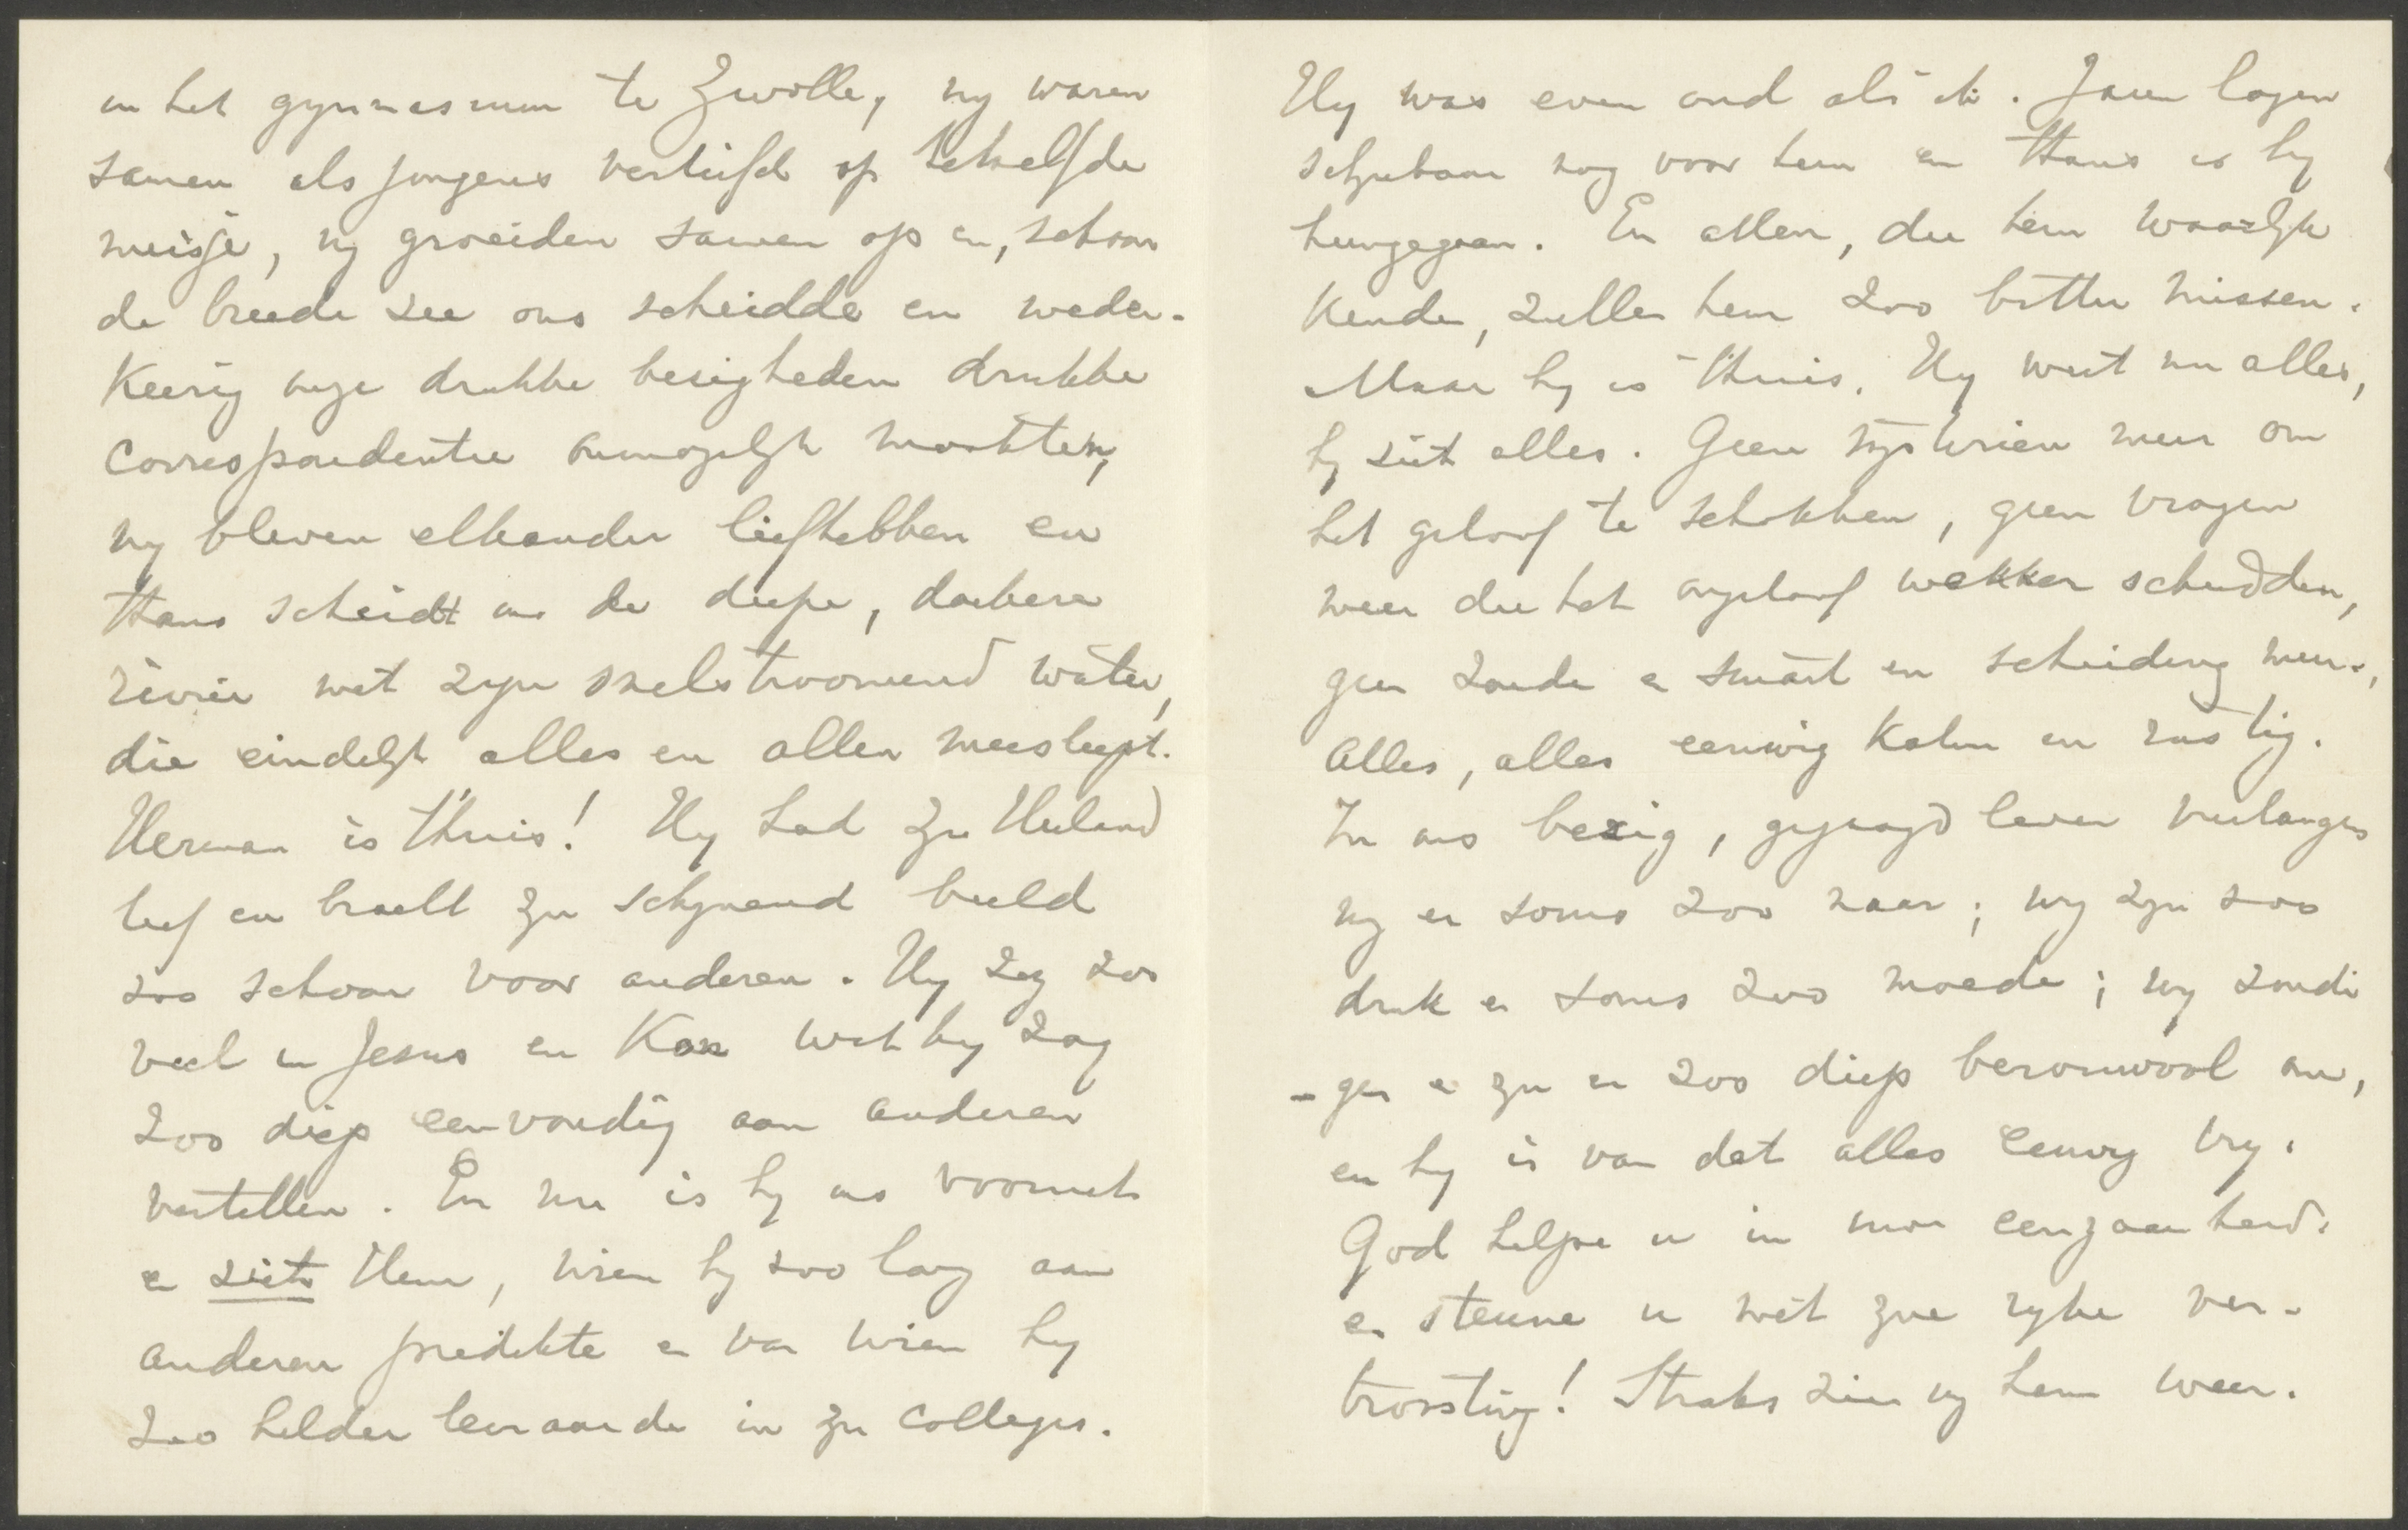 in het gymnasium te Zwolle, wy waren
samen als jongens verliefd op hetzelfde
meisje, wy groeiden samen op en, schoon
de breede zee ons scheidde en weder-
keerig onze drukke bezigheden drukke
correspondentie onmogelyk maakten,
wy bleven elkander liefhebben en
thans scheidt ons de diepe, donkere
rivier met zyn snelstroomend water,
die eindelyk alles en allen meesleept.
Herman is thuis! Hy had zyn Heiland
lief en bracht zyn schynend beeld
zoo schoon voor anderen. Hy zag zoo
veel in Jesus en kon wat hy zag
zoo diep eenvoudig aan anderen
vertellen. En nu is hy ons vooruit
en ziet Hem, wien hy zoo lang aan
anderen predikte en van wien hy
zoo helder leeraarde in zyn colleges.
Hy was even oud als ik. Jaren lagen
schynbaar nog voor hem en thans is hy
heengegaan. En allen, die hem waarlyk
kenden, zullen hem zoo bitter missen.
Maar hy is thuis. Hy weet nu alles,
hy ziet alles. Geen mysterien meer om
het geloof te schokken, geen vragen
meer die het ongeloof wakker schudden,
geen zonde en smart en scheiding meer,
Alles, alles eeuwig kalm en rustig.
In ons bezig, gejaagd leven verlangen
wy er soms zoo naar; wy zyn zoo
druk en soms zoo moede; wy zondi
-gen en zyn er zoo diep berouwvol om,
en hy is van dat alles eeuwig vry.
God helpe u in uwe eenzaamheid
en steune u met zyne ryke ver-
troosting! Straks zien wy hem weer.